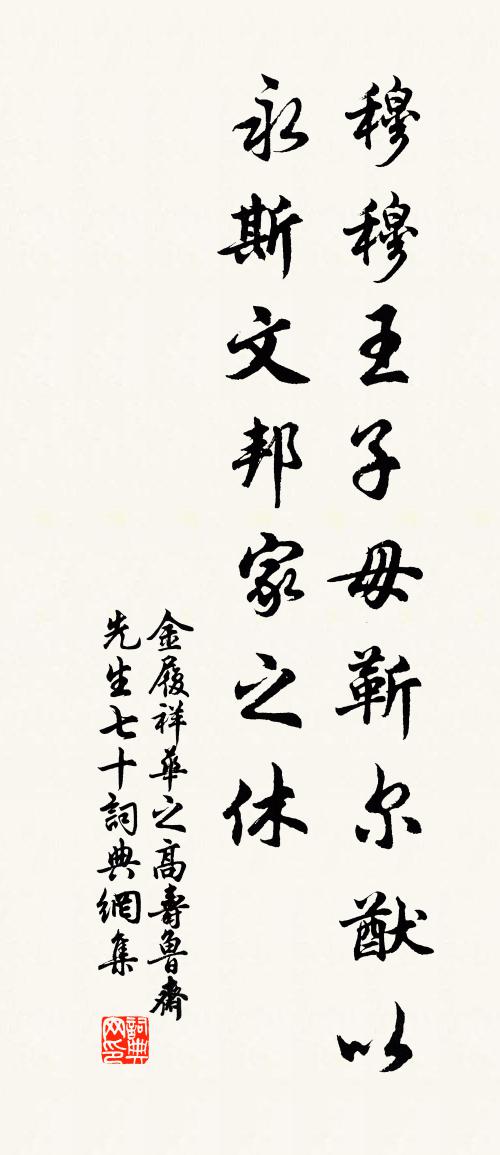 穆穆王子毋靳尔猷以
永斯文邦家之休
金履祥华之高壽魯齋
先生七十詞典網集
詞典网印